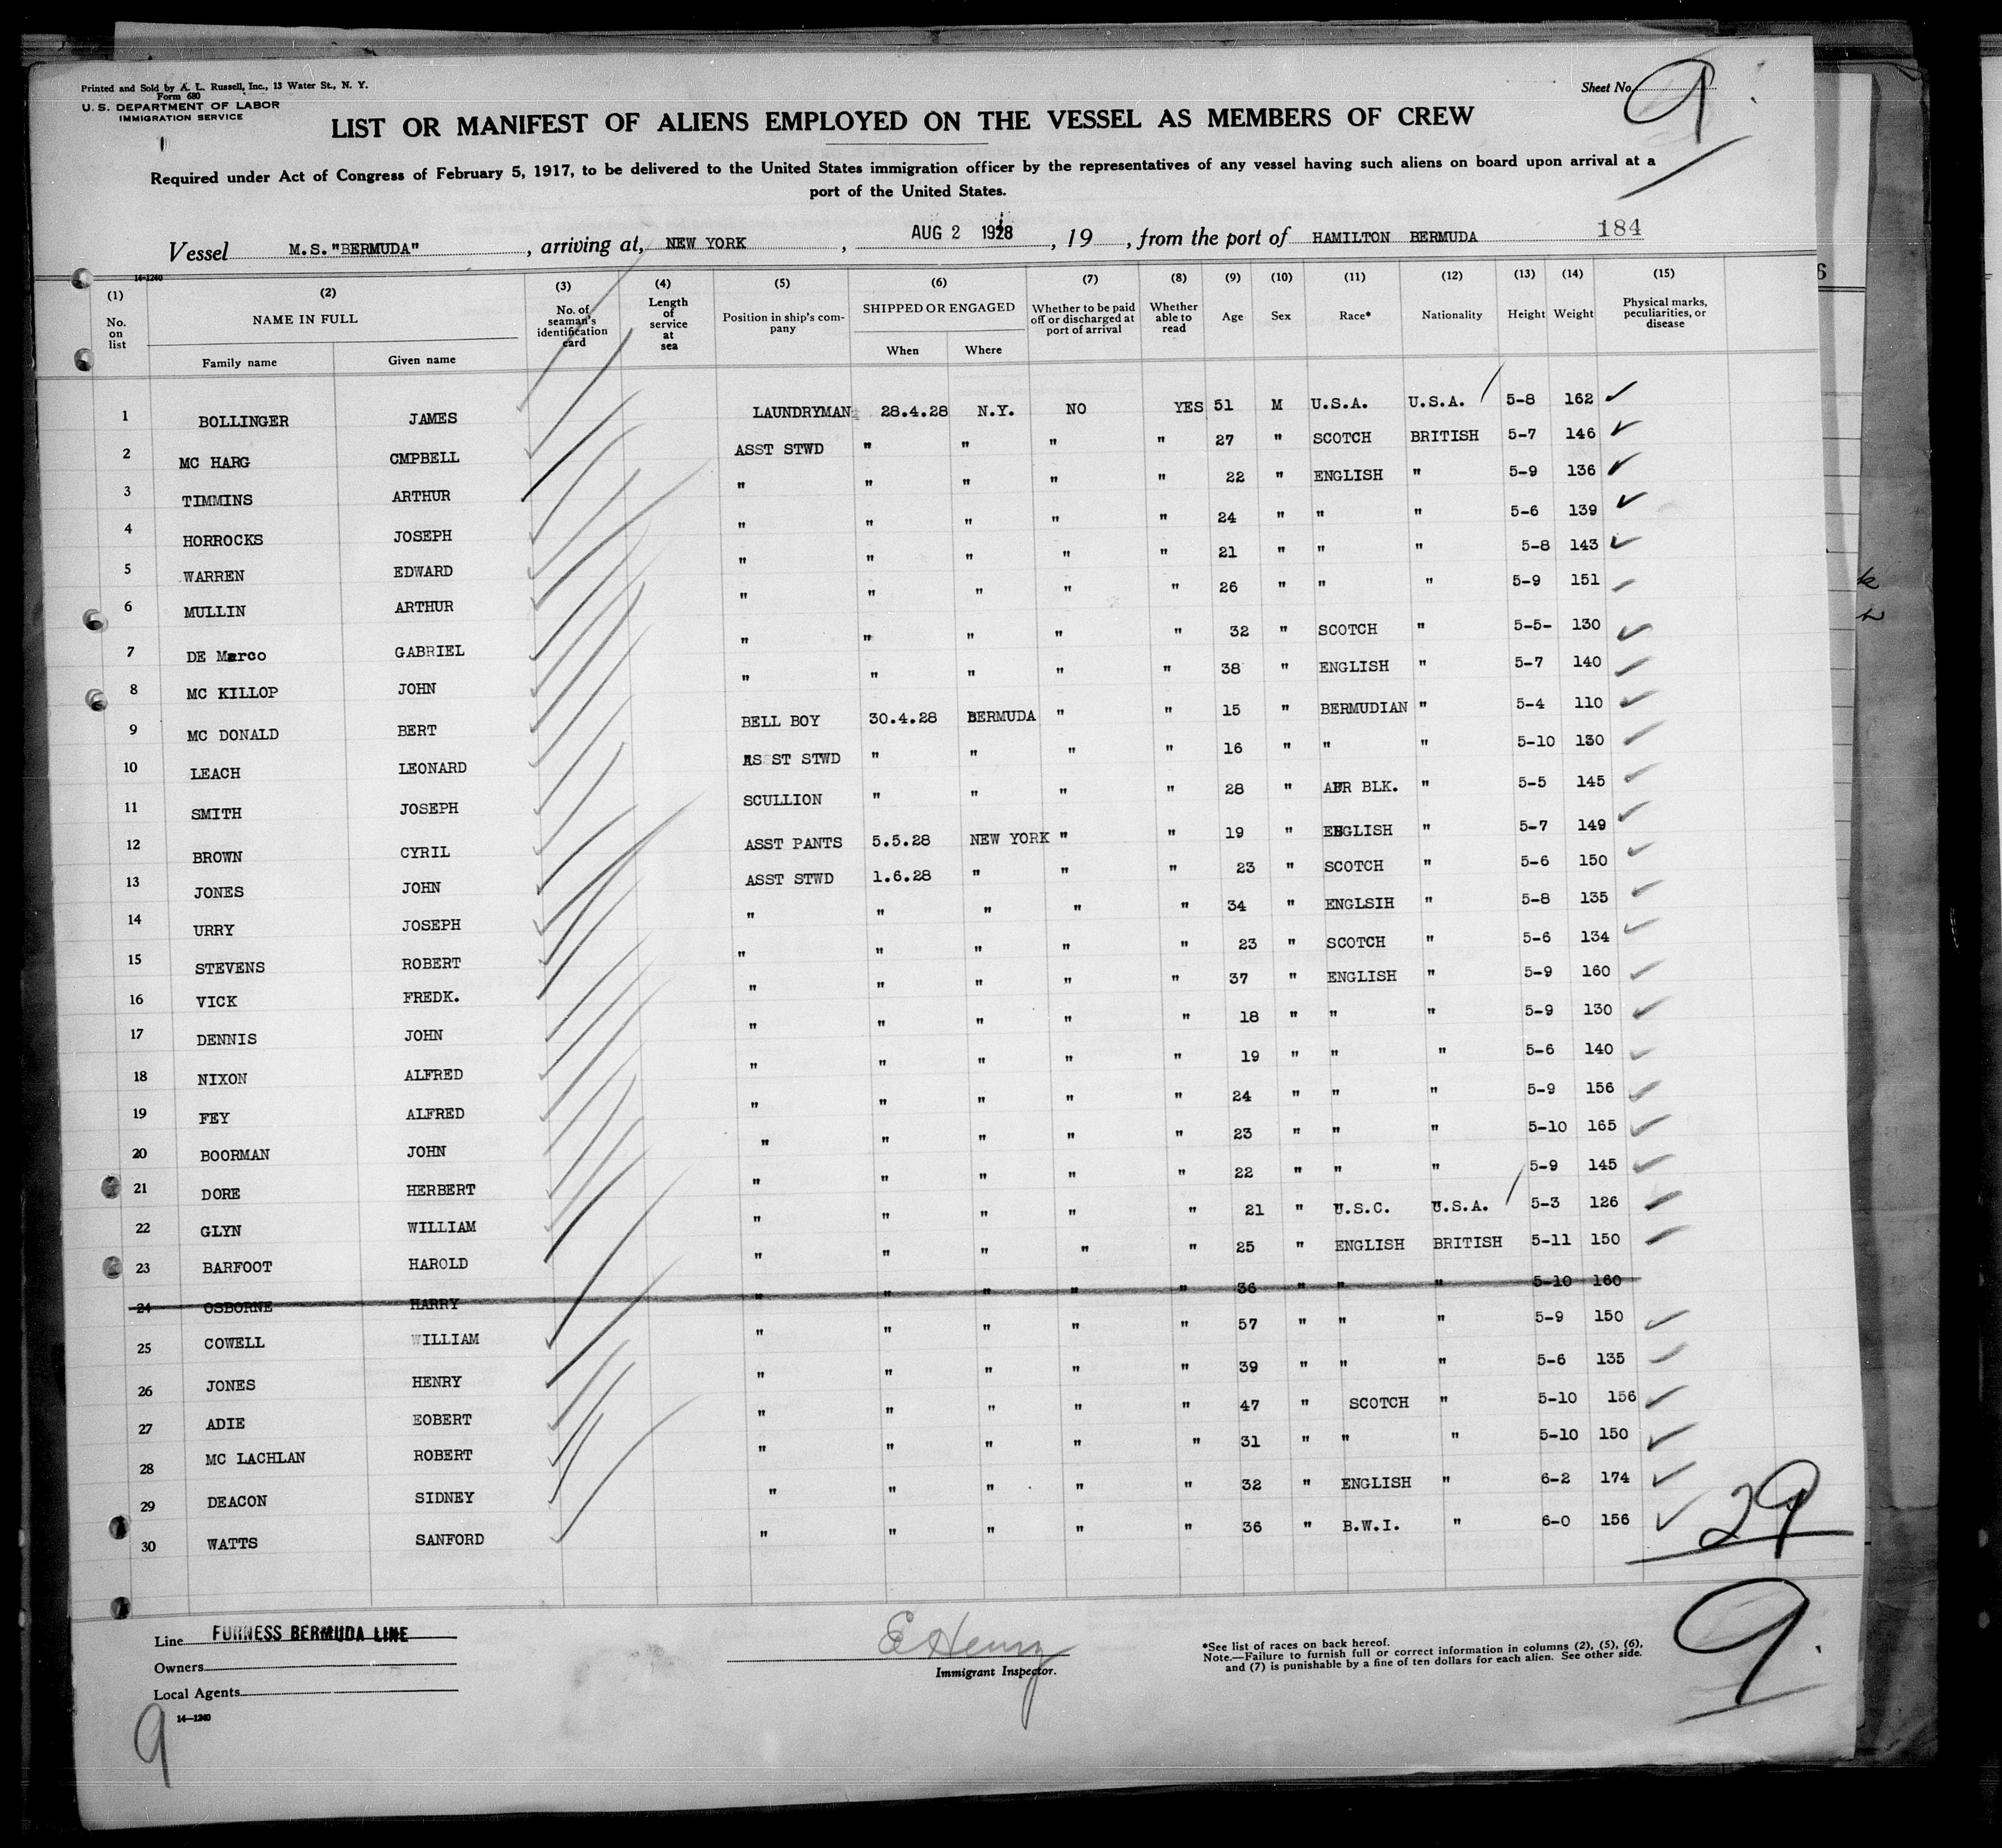 Printed and Sold by A. L. Russell, Inc., 13 Water St., N. Y.
Form 680
U. S. DEPARTMENT OF LABOR
IMMIGRATION SERVICE
Sheet No. 9
LIST OR MANIFEST OF ALIENS EMPLOYED ON THE VESSEL AS MEMBERS OF CREW
Required under Act of Congress of February 5, 1917, to be delivered to the United States immigration officer by the representatives of any vessel having such aliens on board upon arrival at a
port of the United States.
Vessel M.S."BERMUDA" , arriving at, NEW YORK , AUG 2 1928 , 19 , from the port of HAMILTON BERMUDA 184
14-1240
(1) (2) (3) (4) (5) (6) (7) (8) (9) (10) (11) (12) (13) (14) (15)
No. on list NAME IN FULL No. of seaman's identification card Length of service at sea Position in ship's company SHIPPED OR ENGAGED Whether to be paid off or discharged at port of arrival Whether able to read Age Sex Race* Nationality Height Weight Physical marks, peculiarities, or disease
Family name Given name When Where
1 BOLLINGER JAMES LAUNDRYMAN 28.4.28 N.Y. NO YES 51 M U.S.A. U.S.A. 5-8 162
2 MC HARG CMPBELL ASST STWD " " " " 27 " SCOTCH BRITISH 5-7 146
3 TIMMINS ARTHUR " " " " " 22 " ENGLISH " 5-9 136
4 HORROCKS JOSEPH " " " " " 24 " " " 5-6 139
5 WARREN EDWARD " " " " " 21 " " " 5-8 143
6 MULLIN ARTHUR " " " " " 26 " " " 5-9 151
7 DE Marco GABRIEL " " " " " 32 " SCOTCH " 5-5- 130
8 MC KILLOP JOHN " " " " " 38 " ENGLISH " 5-7 140
9 MC DONALD BERT BELL BOY 30.4.28 BERMUDA " " 15 " BERMUDIAN " 5-4 110
10 LEACH LEONARD ASST STWD " " " " 16 " " " 5-10 130
11 SMITH JOSEPH SCULLION " " " " 28 " AFR BLK. " 5-5 145
12 BROWN CYRIL ASST PANTS 5.5.28 NEW YORK " " 19 " ENGLISH " 5-7 149
13 JONES JOHN ASST STWD 1.6.28 " " " 23 " SCOTCH " 5-6 150
14 URRY JOSEPH " " " " " 34 " ENGLSIH " 5-8 135
15 STEVENS ROBERT " " " " " 23 " SCOTCH " 5-6 134
16 VICK FREDK. " " " " " 37 " ENGLISH " 5-9 160
17 DENNIS JOHN " " " " " 18 " " " 5-9 130
18 NIXON ALFRED " " " " " 19 " " " 5-6 140
19 FEY ALFRED " " " " " 24 " " " 5-9 156
20 BOORMAN JOHN " " " " " 23 " " " 5-10 165
21 DORE HERBERT " " " " " 22 " " " 5-9 145
22 GLYN WILLIAM " " " " " 21 " U.S.C. U.S.A. 5-3 126
23 BARFOOT HAROLD " " " " " 25 " ENGLISH BRITISH 5-11 150
24 OSBORNE HARRY " " " " " 36 " " " 5-10 160
25 COWELL WILLIAM " " " " " 57 " " " 5-9 150
26 JONES HENRY " " " " " 39 " " " 5-6 135
27 ADIE EOBERT " " " " " 47 " SCOTCH " 5-10 156
28 MC LACHLAN ROBERT " " " " " 31 " " " 5-10 150
29 DEACON SIDNEY " " " " " 32 " ENGLISH " 6-2 174
30 WATTS SANFORD " " " " " 36 " B.W.I. " 6-0 156
29
9
Line FURNESS BERMUDA LINE
Owners
Local Agents
14-1240
9
E Henry
Immigrant Inspector.
*See list of races on back hereof.
Note.—Failure to furnish full or correct information in columns (2), (5), (6),
and (7) is punishable by a fine of ten dollars for each alien. See other side.